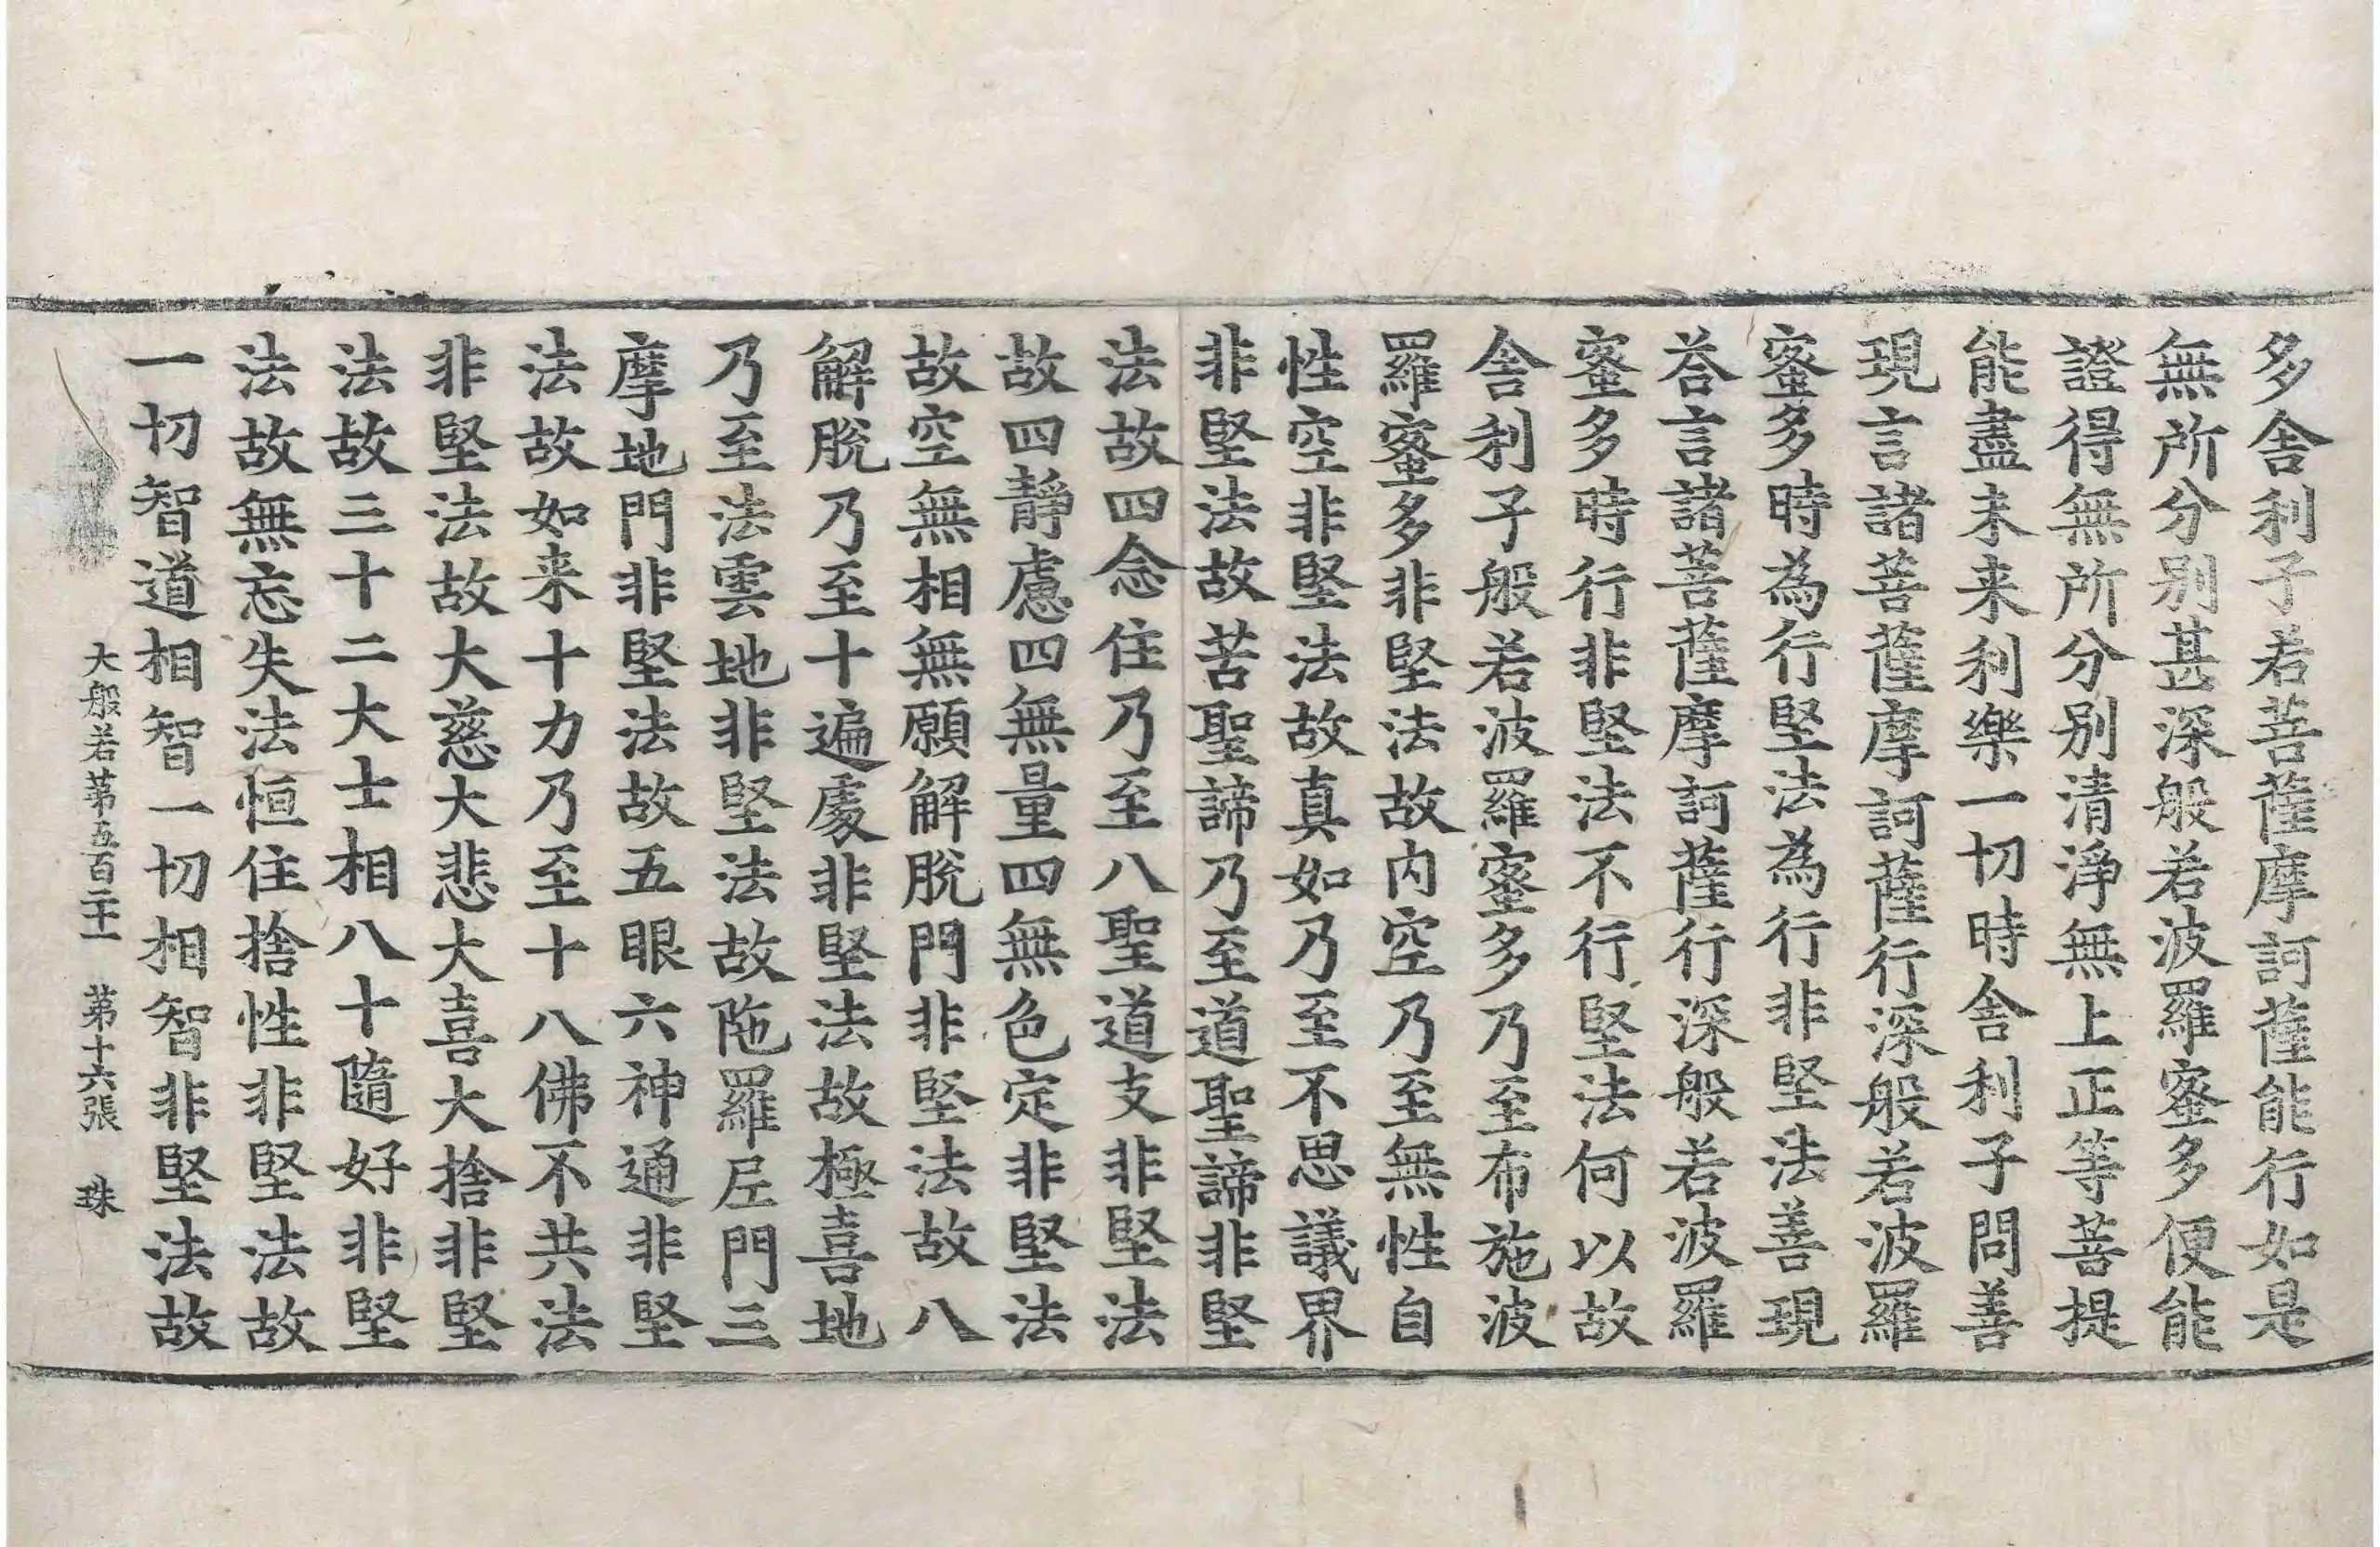 多舍利子若菩薩摩訶薩能行如是
無所分别甚深般若波羅蜜多便能
證得無所分别清淨無上正等菩提
能盡未来利樂一切時舍利子問善
現言諸菩薩摩訶薩行深般若波羅
蜜多時為行堅法為行非堅法善現
荅言諸菩薩摩訶薩行深般若波羅
蜜多時行非堅法不行堅法何以故
舍利子般若波羅蜜多乃至布施波
羅蜜多非堅法故内空乃至無性自
性空非堅法故真如乃至不思議界
非堅法故苦聖諦乃至道聖諦非堅
法故四念住乃至八聖道支非堅法
故四靜慮四無量四無色定非堅法
故空無相無願解脫門非堅法故八
解脫乃至十遍處非堅法故極喜地
乃至法雲地非堅法故陁羅尼門三
摩地門非堅法故五眼六神通非堅
法故如来十力乃至十八佛不共法
非堅法故大慈大悲大喜大捨非堅
法故三十二大士相八十隨好非堅
法故無忘失法恒住捨性非堅法故
一切智道相智一切相智非堅法故
大般若苐五百二十一 苐十六張 珠